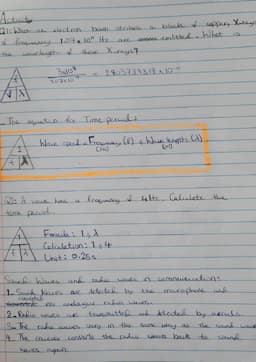 Activity
Q1: When an electron beam strikes a block of copper, X-rays
of frequency 1.07 x 10 Hz are emitted. What is
the wavelength of these X-rays?
3x10⁸
The equation for Time period:
Wave speed = Frequency (F) x Wave length (λ)
(Hz) (m)
Q2: A wave has a frequency of 4Hz. Calculate the
time period.
Formula: 1 ÷ λ
Calculation: 1 ÷ 4
Unit: 0.25s
Sound Waves and radio waves in communication:
1. Sound Waves are detected by the microphone and
converted into analogue radio waves.
2. Radio waves are transmitted and detected by aerials.
3. The radio waves vary in the same way as the sound wave
4. The receiver converts the radio waves back to sound
waves again.